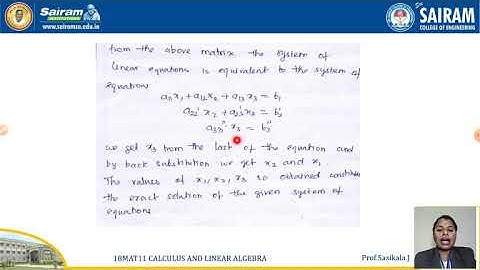 Sairam
INSTITUTIONS
www.sairamse.edu.in
Sri
SAIRAM
COLLEGE OF ENGINEERING
from the above matrix the system of
linear equations is equivalent to the system of
equation
a11x1+a12x2+a13x3 = b1
a22'x2+a23'x3 = b2'
a33''x3 = b3''
we get x3 from the last of the equation and
by back substitution we get x2 and x1
The values of x1, x2, x3 so obtained
the exact solution of the given system of
equations
18MAT11 CALCULUS AND LINEAR ALGEBRA
Prof.Sasikala.J